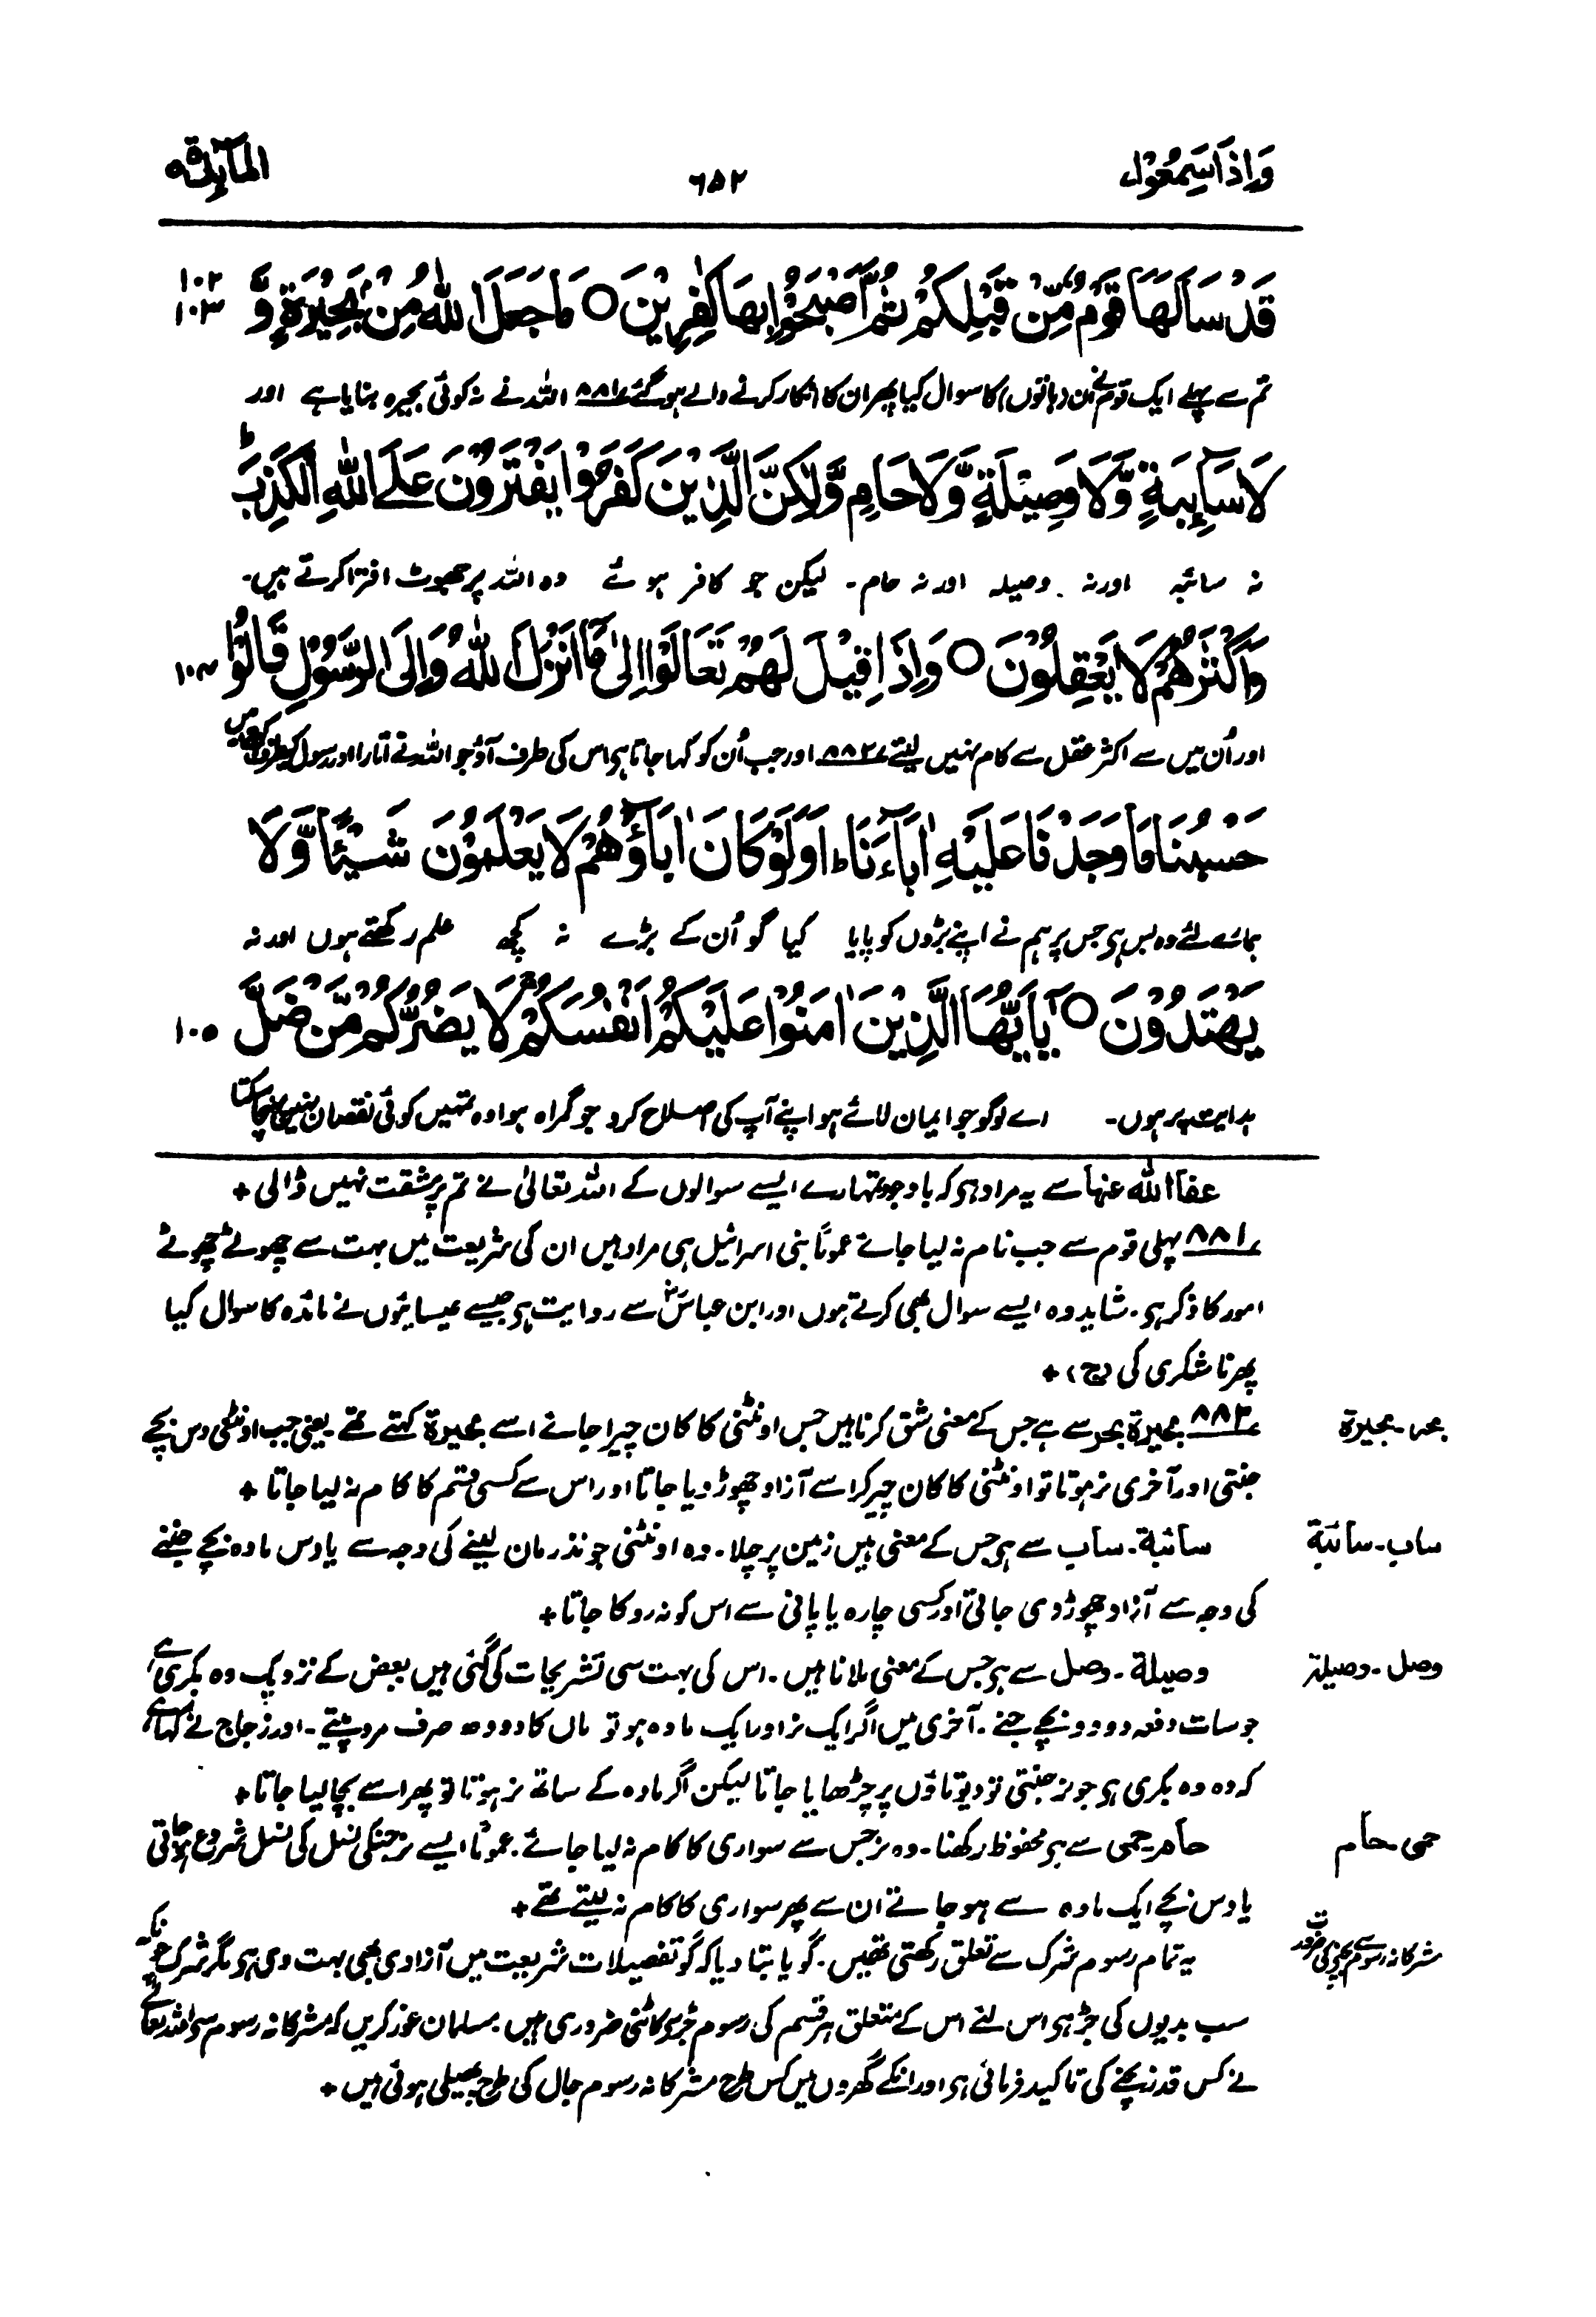 وَاِذَا سَمِعُوْا
۶۵۲
المآئدة ۵
قَدْ سَاَلَهَا قَوْمٌ مِّنْ قَبْلِكُمْ ثُمَّ اَصْبَحُوْا بِهَا كٰفِرِيْنَ ○ مَا جَعَلَ اللّٰهُ مِنْۢ بَحِيْرَةٍ وَّ
۱۰۲
۱۰۳
تم سے پہلے ایک قوم نے ان (باتوں) کا سوال کیا پھر ان کا انکار کرنے والے ہو گئے ۸۸۱ اللہ نے نہ کوئی بحیرہ بنایا ہے اور
لَا سَآئِبَةٍ وَّلَا وَصِيْلَةٍ وَّلَا حَامٍ وَّلٰكِنَّ الَّذِيْنَ كَفَرُوْا يَفْتَرُوْنَ عَلَى اللّٰهِ الْكَذِبَ ؕ
نہ سائبہ اور نہ وصیلہ اور نہ حام۔ لیکن جو کافر ہوئے وہ اللہ پر جھوٹ افترا کرتے ہیں۔
وَاَكْثَرُهُمْ لَا يَعْقِلُوْنَ ○ وَاِذَا قِيْلَ لَهُمْ تَعَالَوْا اِلٰى مَآ اَنْزَلَ اللّٰهُ وَاِلَى الرَّسُوْلِ قَالُوْا
۱۰۴
اور اُن میں سے اکثر عقل سے کام نہیں لیتے ۸۸۲ اور جب اُن کو کہا جاتا ہی اس کی طرف آؤ جو اللہ نے اتارا اور رسول کی طرف کہتے ہیں
حَسْبُنَا مَا وَجَدْنَا عَلَيْهِ اٰبَآءَنَا ؕ اَوَلَوْ كَانَ اٰبَآؤُهُمْ لَا يَعْلَمُوْنَ شَيْئًا وَّلَا
ہمارے لئے وہ بس ہی جس پر ہم نے اپنے بڑوں کو پایا کیا گو اُن کے بڑے نہ کچھ علم رکھتے ہوں اور نہ
يَهْتَدُوْنَ ○ يٰٓاَيُّهَا الَّذِيْنَ اٰمَنُوْا عَلَيْكُمْ اَنْفُسَكُمْ ۚ لَا يَضُرُّكُمْ مَّنْ ضَلَّ
۱۰۵
ہدایت پر ہوں۔ اے لوگو جو ایمان لائے ہو اپنے آپ کی اصلاح کرو جو گمراہ ہوا وہ تمہیں کوئی نقصان نہیں پہنچا سکتا
عفا اللہ عنہا سے یہ مراد ہی کہ باوجود تمہارے ایسے سوالوں کے اللہ تعالیٰ نے تم پر مشقت نہیں ڈالی +
۸۸۱ پہلی قوم سے جب نام نہ لیا جائے عموماً بنی اسرائیل ہی مراد ہیں ان کی شریعت میں بہت سے چھوٹے چھوٹے
امور کا ذکر ہی۔ شاید وہ ایسے سوال بھی کرتے ہوں اور ابن عباسؓ سے روایت ہی جیسے عیسائیوں نے مائدہ کا سوال کیا
پھر ناشکری کی (ج) +
بحر۔ بحیرة
۸۸۲ بحیرة بحر سے ہے جس کے معنی شق کرنا ہیں جس اونٹنی کا کان چیرا جائے اسے بحیرة کہتے تھے۔ یعنی جب اونٹنی دس بچے
جنتی اور آخری نر ہوتا تو اونٹنی کا کان چیر کر اسے آزاد چھوڑ دیا جاتا اور اس سے کسی قسم کا کام نہ لیا جاتا +
ساب۔ سائبة
سائبة۔ ساب سے ہی جس کے معنی ہیں زمین پر چلا۔ وہ اونٹنی جو نذر مان لینے کی وجہ سے یا دس مادہ بچے جننے
کی وجہ سے آزاد چھوڑ دی جاتی اور کسی چارہ یا پانی سے اس کو نہ روکا جاتا +
وصل۔ وصیلة
وصیلة۔ وصل سے ہی جس کے معنی ملانا ہیں۔ اس کی بہت سی تشریحات کی گئی ہیں بعض کے نزدیک وہ بکری ہے
جو سات دفعہ دو دو بچے جنے۔ آخری میں اگر ایک نر اور ایک مادہ ہو تو ماں کا دودھ صرف مرد پیتے۔ اور زجاج نے کہا ہے
کہ وہ وہ بکری ہی جو نر جنتی تو دیوتاؤں پر چڑھایا جاتا لیکن اگر مادہ کے ساتھ نر ہوتا تو پھر اسے بچا لیا جاتا +
حمی۔ حام
حام۔ حمی سے ہی محفوظ رکھنا۔ وہ نر جس سے سواری کا کام نہ لیا جائے۔ عموماً ایسے نر جنکی نسل کی نسل شروع ہو جاتی
یا دس بچے ایک مادہ سے ہو جاتے ان سے پھر سواری کا کام نہ لیتے تھے +
مشرکانہ رسوم سے بچنے کی ضرورت
یہ تمام رسوم شرک سے تعلق رکھتی تھیں۔ گویا بتا دیا کہ گو تفصیلات شریعت میں آزادی بھی بہت دی ہی مگر شرک چونکہ
سب بدیوں کی جڑ ہی اس لئے اس کے متعلق ہر قسم کی رسوم جڑ سے کاٹنی ضروری ہیں۔ مسلمان غور کریں کہ مشرکانہ رسوم سے اللہ تعالیٰ
نے کس قدر بچنے کی تاکید فرمائی ہی اور انکے گھروں میں کس طرح مشرکانہ رسوم جال کی طرح پھیلی ہوئی ہیں +